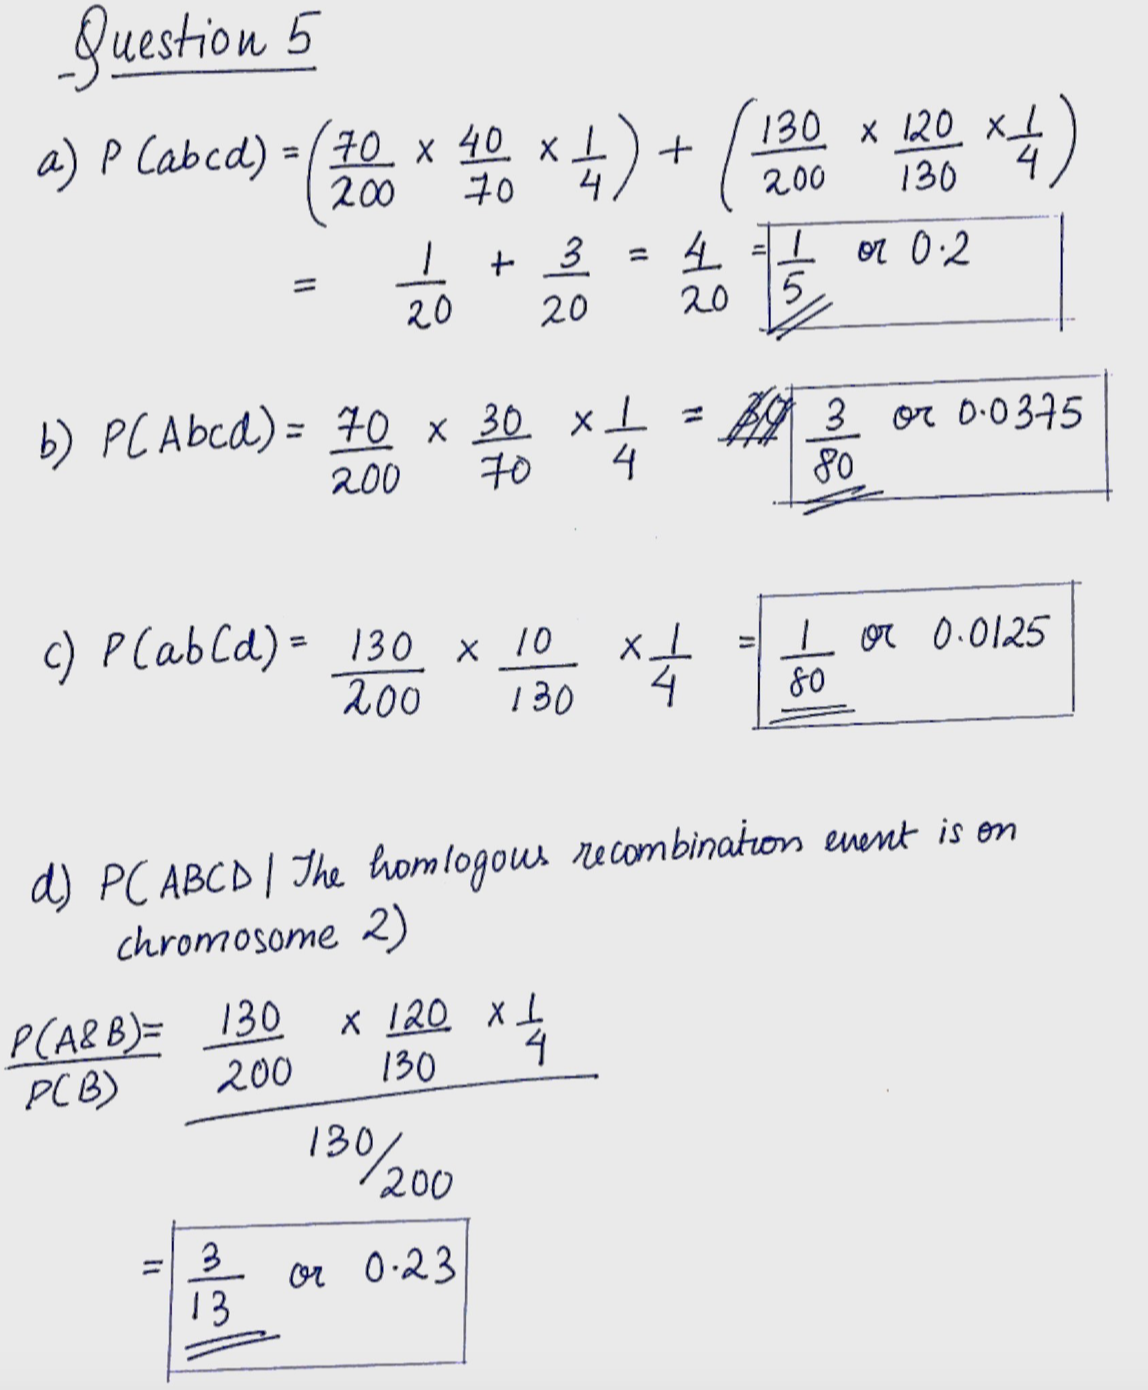 Question 5
a) P(abcd) = (70/200 x 40/70 x 1/4) + (130/200 x 120/130 x 1/4)
= 1/20 + 3/20 = 4/20 = 1/5 or 0.2
b) P(Abcd) = 70/200 x 30/70 x 1/4 = 3/80 or 0.0375
c) P(abCd) = 130/200 x 10/130 x 1/4 = 1/80 or 0.0125
d) P(ABCD | The homlogous recombination event is on
chromosome 2)
P(A&B)/P(B) = (130/200 x 120/130 x 1/4) / (130/200)
= 3/13 or 0.23